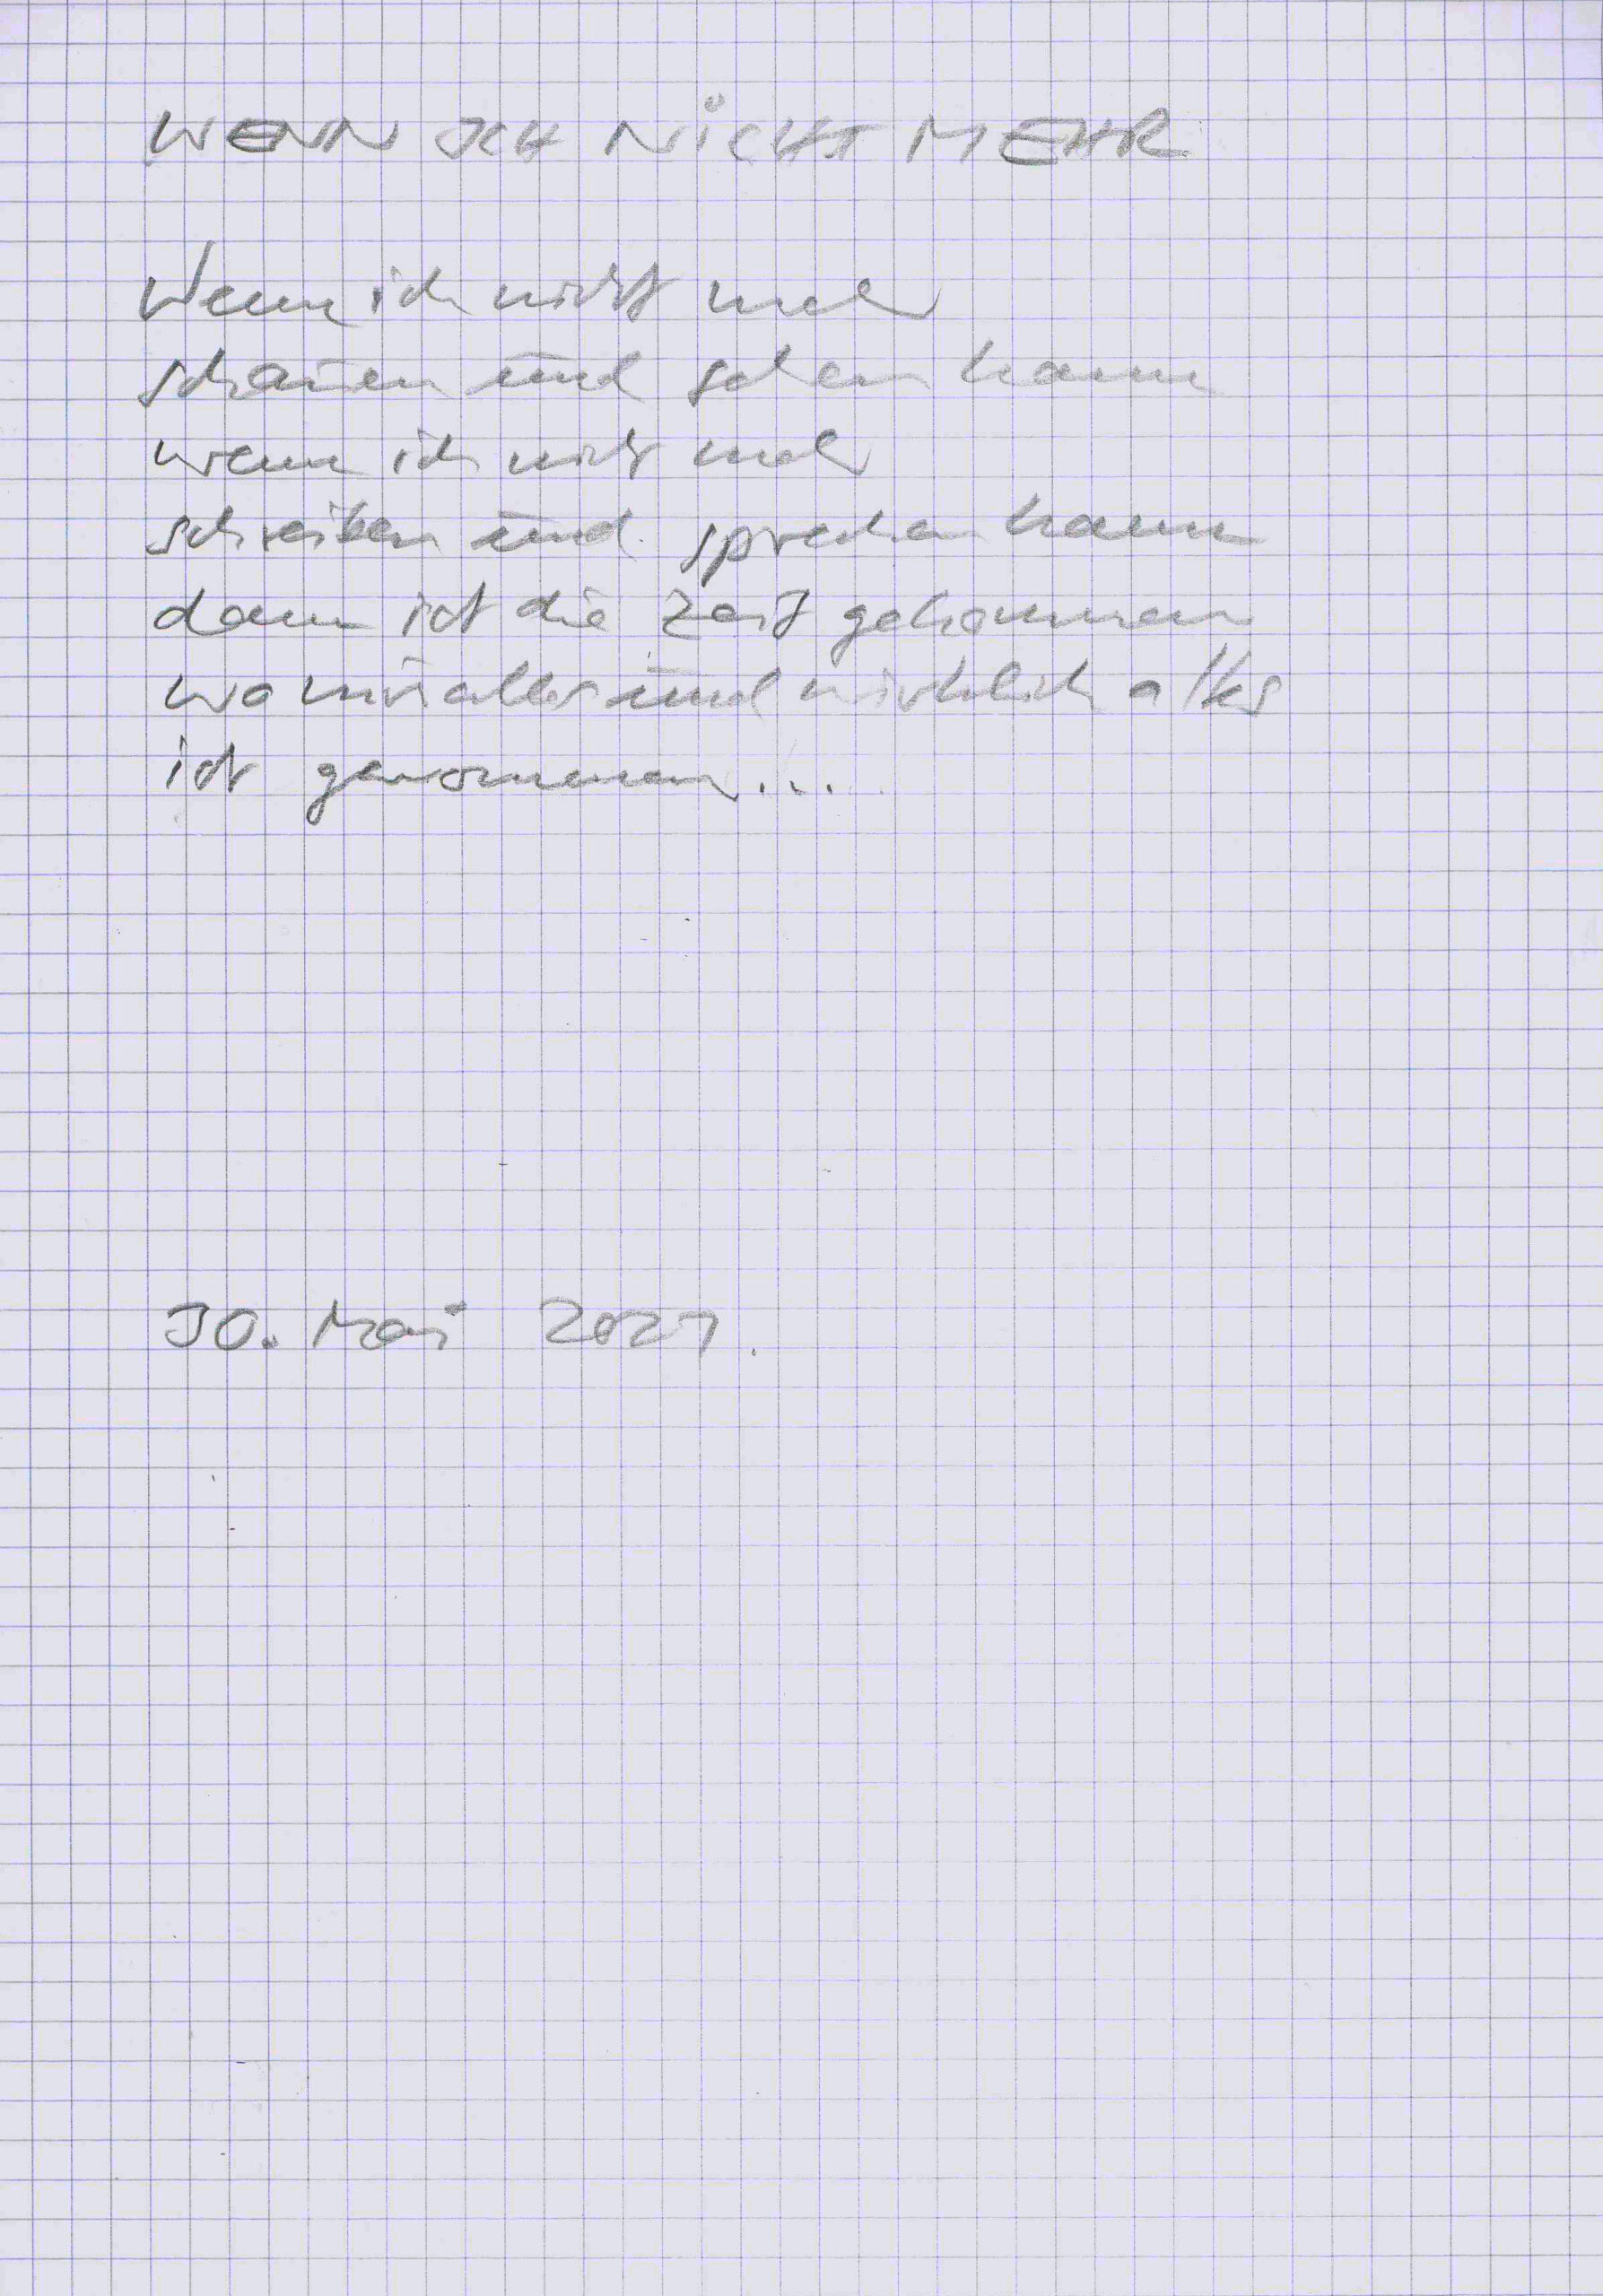 WENN ICH NICHT MEHR
Wenn ich nicht mehr
schauen und sehen kann
wenn ich nicht mehr
schreiben und sprechen kann
dann ist die Zeit gekommen
wo mir alles und wirklich alles
ist genommen...
30. Mai 2021.